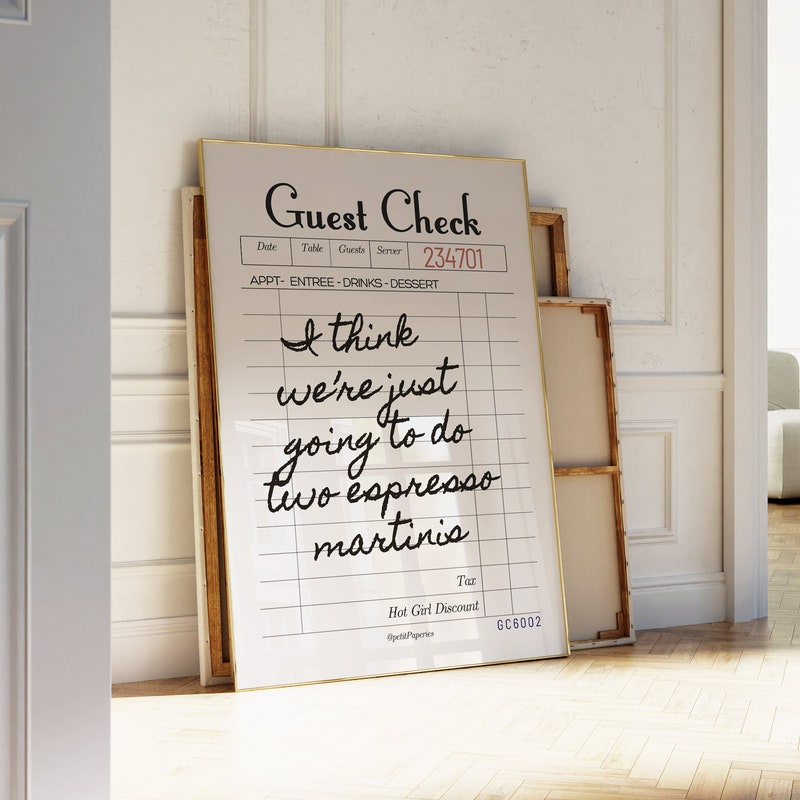 Guest Check
Date Table Guests Server 234701
APPT- ENTREE - DRINKS - DESSERT
I think
we're just
going to do
two espresso
martinis
Tax
Hot Girl Discount
@petitPaperies
GC6002